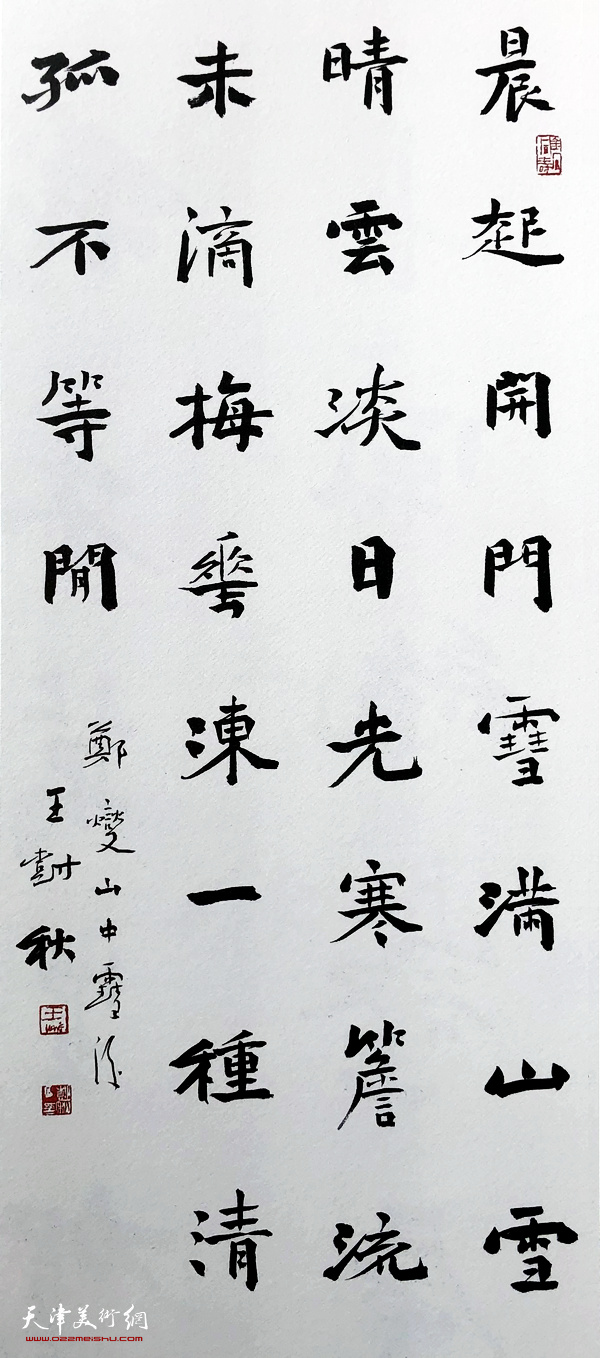 晨起開門雪滿山雪
晴雲淡日光寒簷流
未滴梅華凍一種清
孤不等閒
鄭燮山中雪後
王尌秋
天津美術網
www.022meishu.com